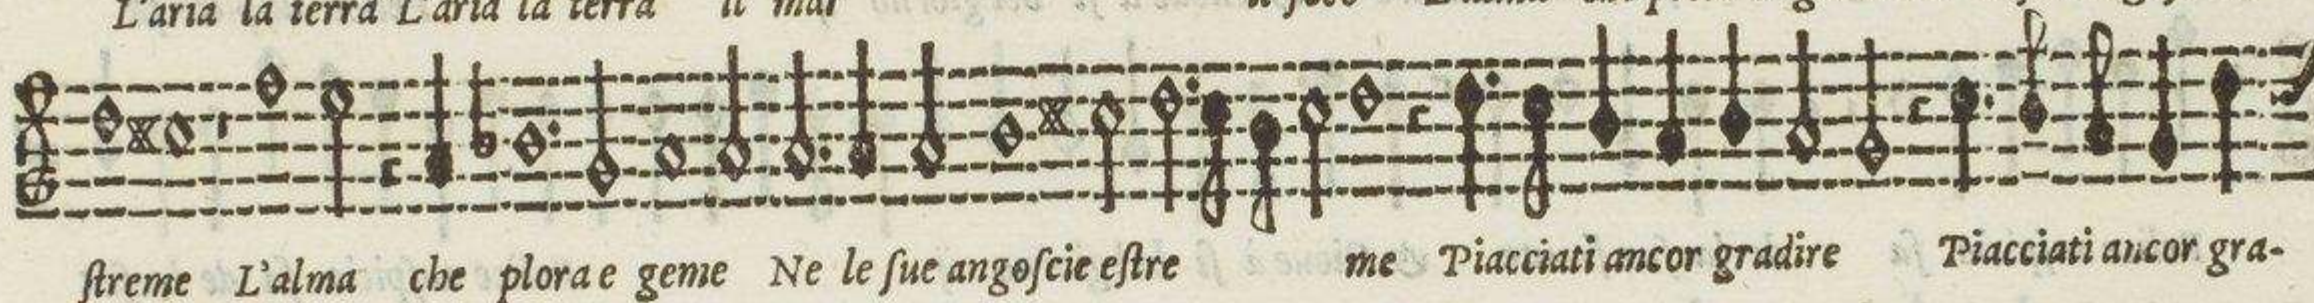 L'aria la terra L'aria la terra il mar
ſtreme L'alma che plora e geme Ne le ſue angoſcie eſtre me Piacciati ancor gradire Piacciati ancor gra-